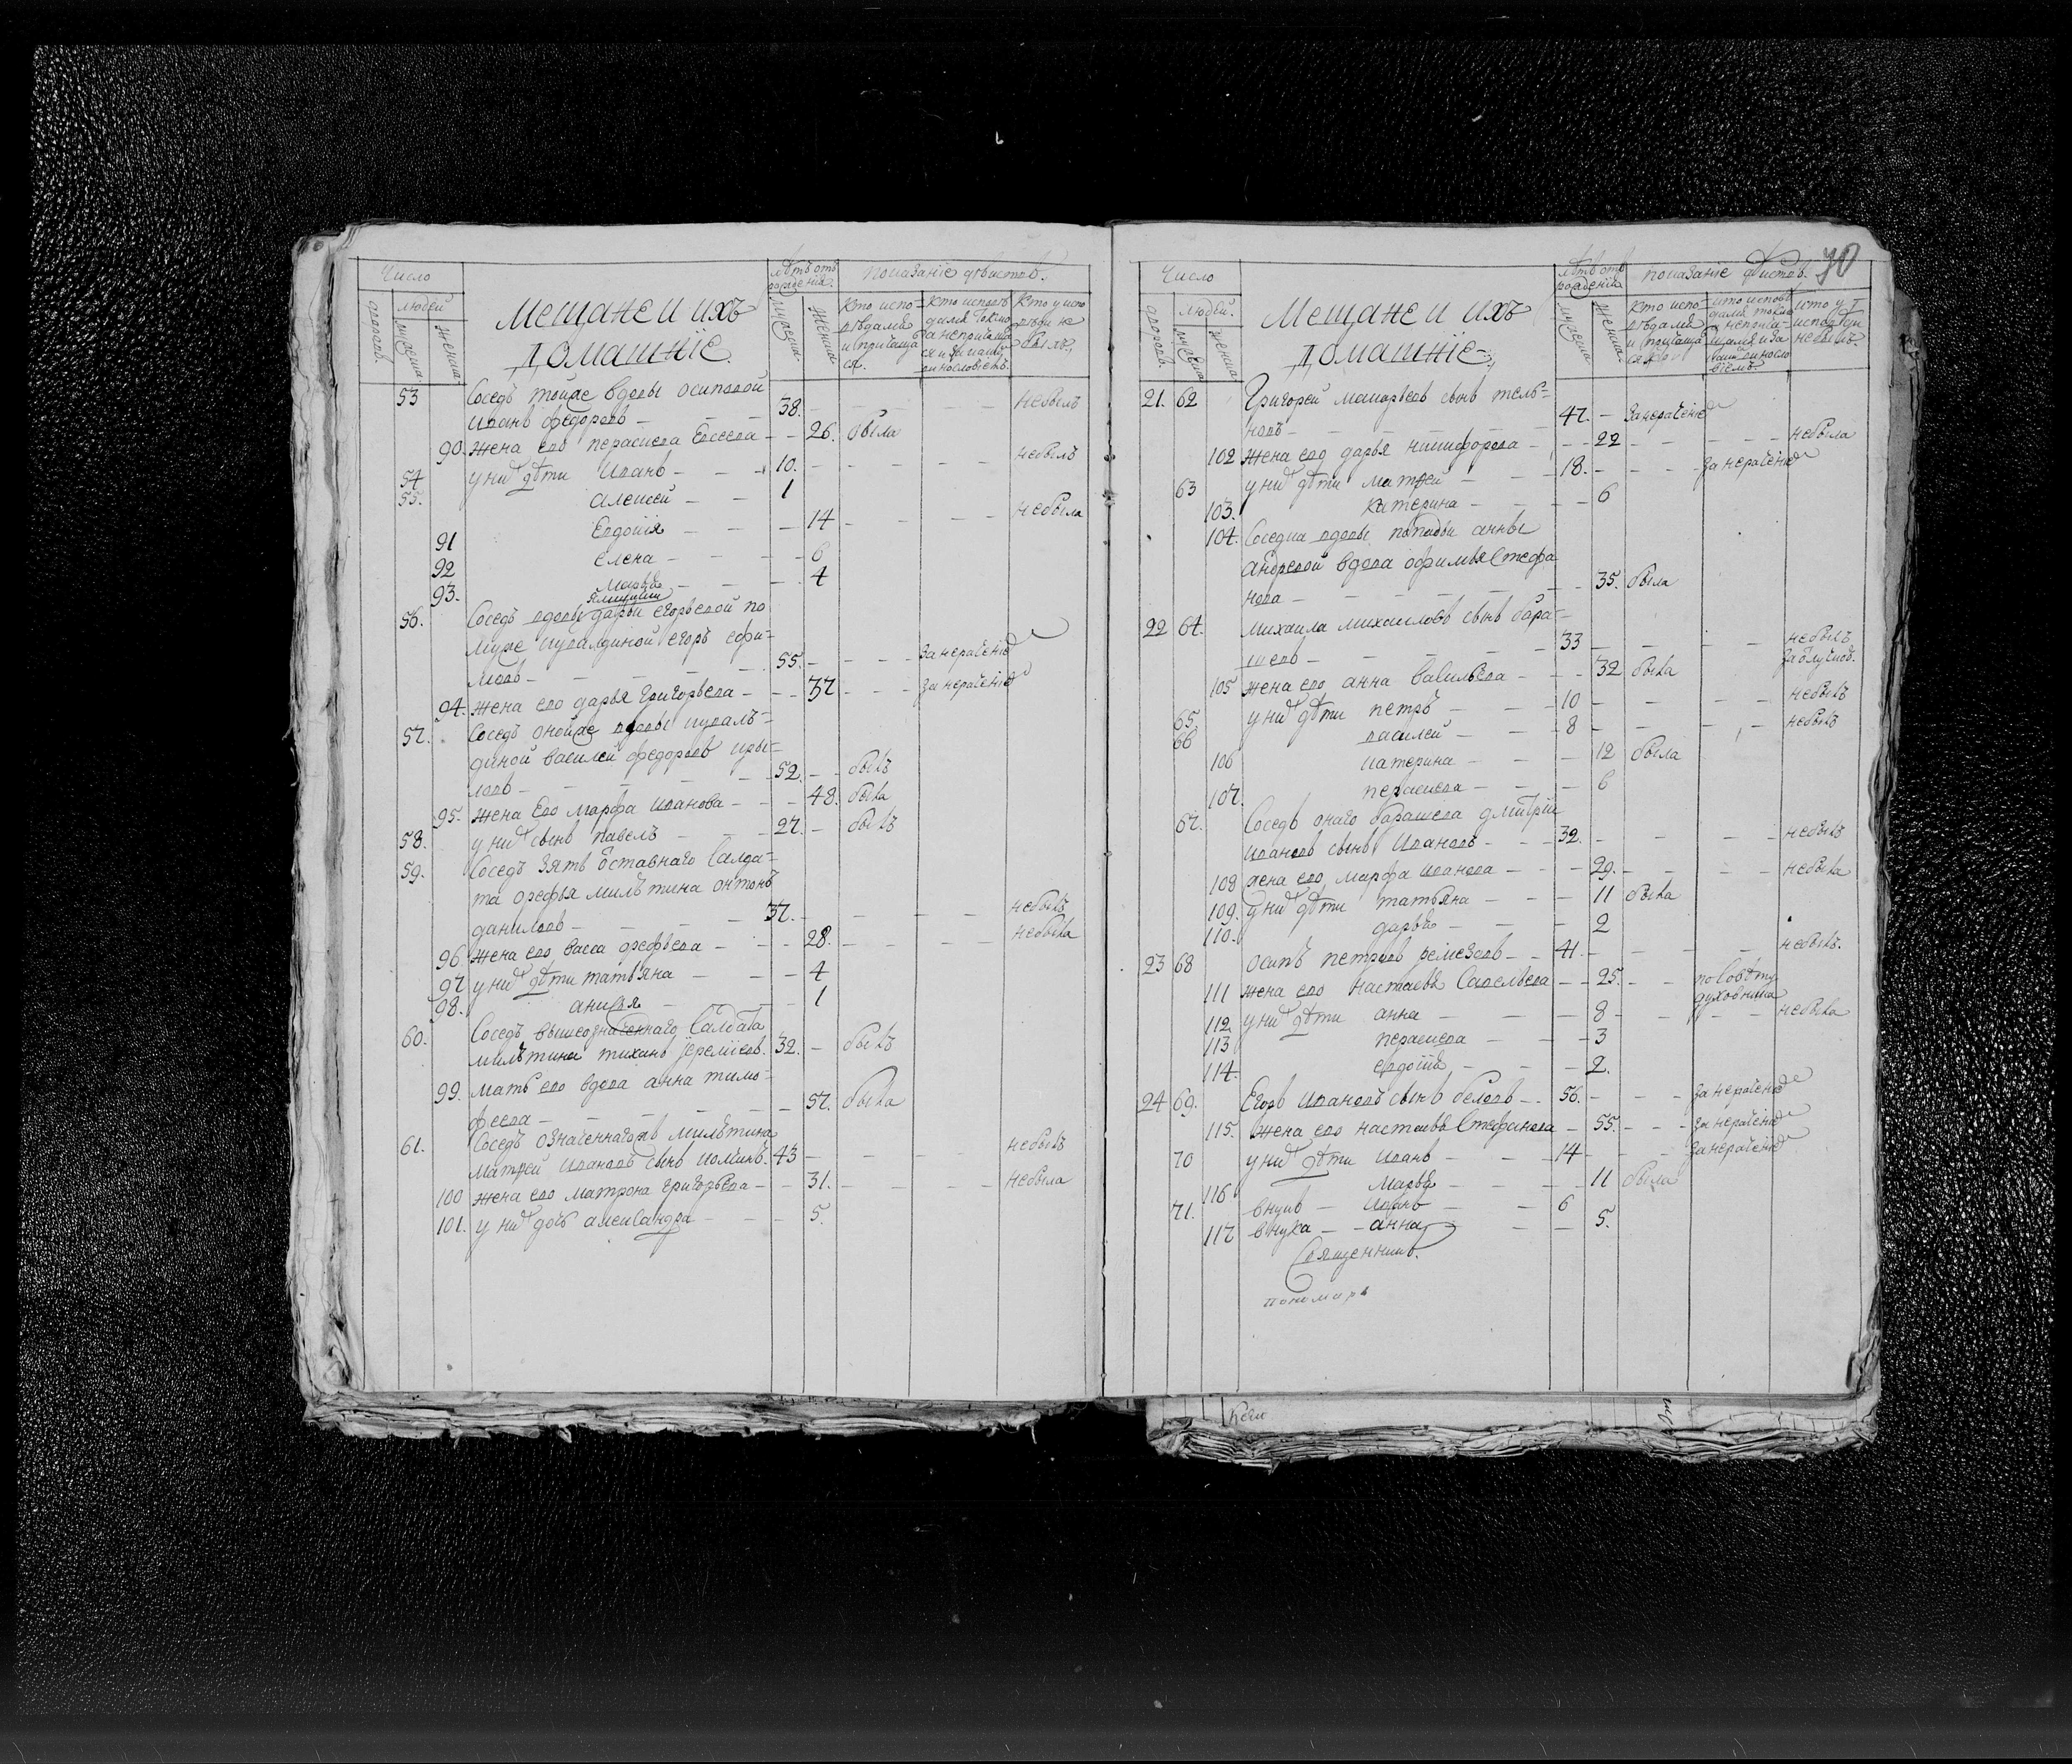 Число
людей
дворовъ.
мужеска.
женска.
Мещане и ихъ
домашнїе
лѣтъ отъ
рожденїя.
мужеска
женска
показанїе дѣистов.
Кто испо-
вѣдалися
и причаща
ся.
Кто исповѣ
дался токмо
а непричаща
ся и за какимъ
винословїемъ.
Кто у испо
вѣди не
былъ.
53 Соседъ тойже вдовы осиповой
иванъ федоровъ — 38. — небылъ
90. жена его пераскева Евсеева — 26. была
54 у них дѣти Иванъ — 10. — небылъ
55. алексей — 1
91 Евдокїя — 14 — небыла
92 елена — 6
93. марья — 4
ямщики
56. Соседъ вдовы дарьи егорьевой по
муже чувалдиной егоръ ефи-
мовъ — 55. — за нерачение
94. жена его дарья григорьева — 37 — за нерачение
57. Соседъ онойже вдовы чувал-
диной василей федоровъ
52. — былъ
95. жена Его марфа иванова — 48. была
58. у них сынъ павелъ — 27. — былъ
59. Соседъ зять Отставнаго Салда-
та арефья милѣтина антонъ
даниловъ — 37. — небылъ
96 жена его васса арефьева — 28. — небыла
97 у них дѣти татьяна — 4
98. анисья — 1
60. Соседъ вышеозначеннаго Салдата
милѣтина тиханъ їеремїевъ. 32. — былъ
99. мать его вдова анна тимо-
феева — 57. была
61. Соседъ означеннагожъ милѣтина
матѳей ивановъ сынъ 43 — небылъ
100 жена его матрона григорьева — 31. — небыла
101. у них дочь александра — 5.
70
Число
людей.
дворовъ.
мужеска
женска
Мещане и ихъ
домашнїе.
лѣтъ отъ
рожденїя
мужеска
женска
показанїе дѣистов.
Кто испо-
вѣдался
и причаща
ся
кто исповѣ
дался токмо
а неприча-
щался и за
каким виносло
вїемъ.
кто у
исповѣди
небылъ.
21. 62 Григорей макарьевъ сынъ тель-
новъ — 47. — за нерачение
102 жена его дарья никифорова — 22 — небыла
63 у них дѣти матѳей — 18. — за нерачение
103. катерина — 6
104. Соседка вдовы попадьи анны
андреевой вдова офимья Стефа
нова — 35. была
22 64. михаила михаиловъ сынъ бара-
шевъ — 33 — небылъ
за отлучкой.
105 жена его анна васильева — 32 была
65. у них дѣти петръ — 10 — небылъ
66 василей — 8 — небылъ
106 катерина — 12 была
107. пераскева — 6
67. Соседъ онаго барашева дмитрїи
ивановъ сынъ Ивановъ — 32. — небылъ
108 жена его марфа иванова — 29. — небыла
109. у них дѣти татьяна — 11 была
110. дарья — 2
23 68 осипъ петровъ ремезовъ — 41. — небылъ.
111 жена его настасья Савельева — 25. — по совѣту
духовника
112 у них дѣти анна — 8 — небыла
113 пераскева — 3
114. евдокїя — 2.
24 69. Егоръ Ивановъ сынъ беловъ — 56. — за нерачение
115. жена его настасья Стефанова — 55. — за нерачение
70 у них дѣти иванъ — 14 — за нерачение
116 марья — 11 была
71. внукъ — иванъ — 6
117 внука — анна — 5.
Священникъ.
пономарь